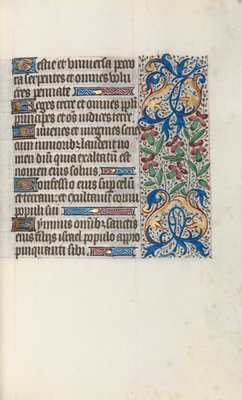 Bestie et vniuersa pecora
serpentes et omnes volu
cres pennate
Reges terre et omnes ppli
principes et oēs iudices terre
Iuuenes et virgines sene
cum iunioribz laudent no
men dñi quia exaltatū est
nomen eius solius
Confessio eius sup celū
et terram et exaltauit cornu
populi sui
Hymnus omībz sanctis
eius filijs israel populo appro
pinquanti sibi